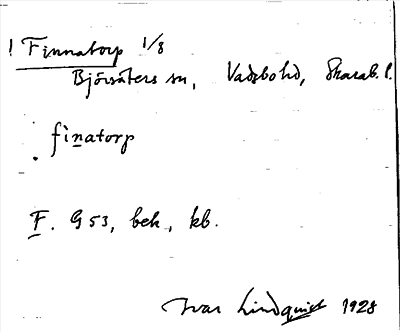 ! Finnatorp 1/8
Björsäters sn, Vadsbo hd, Skarab. l.
. fìnatorp
F. G 53, bek., kb.
Ivar Lindquist 1928